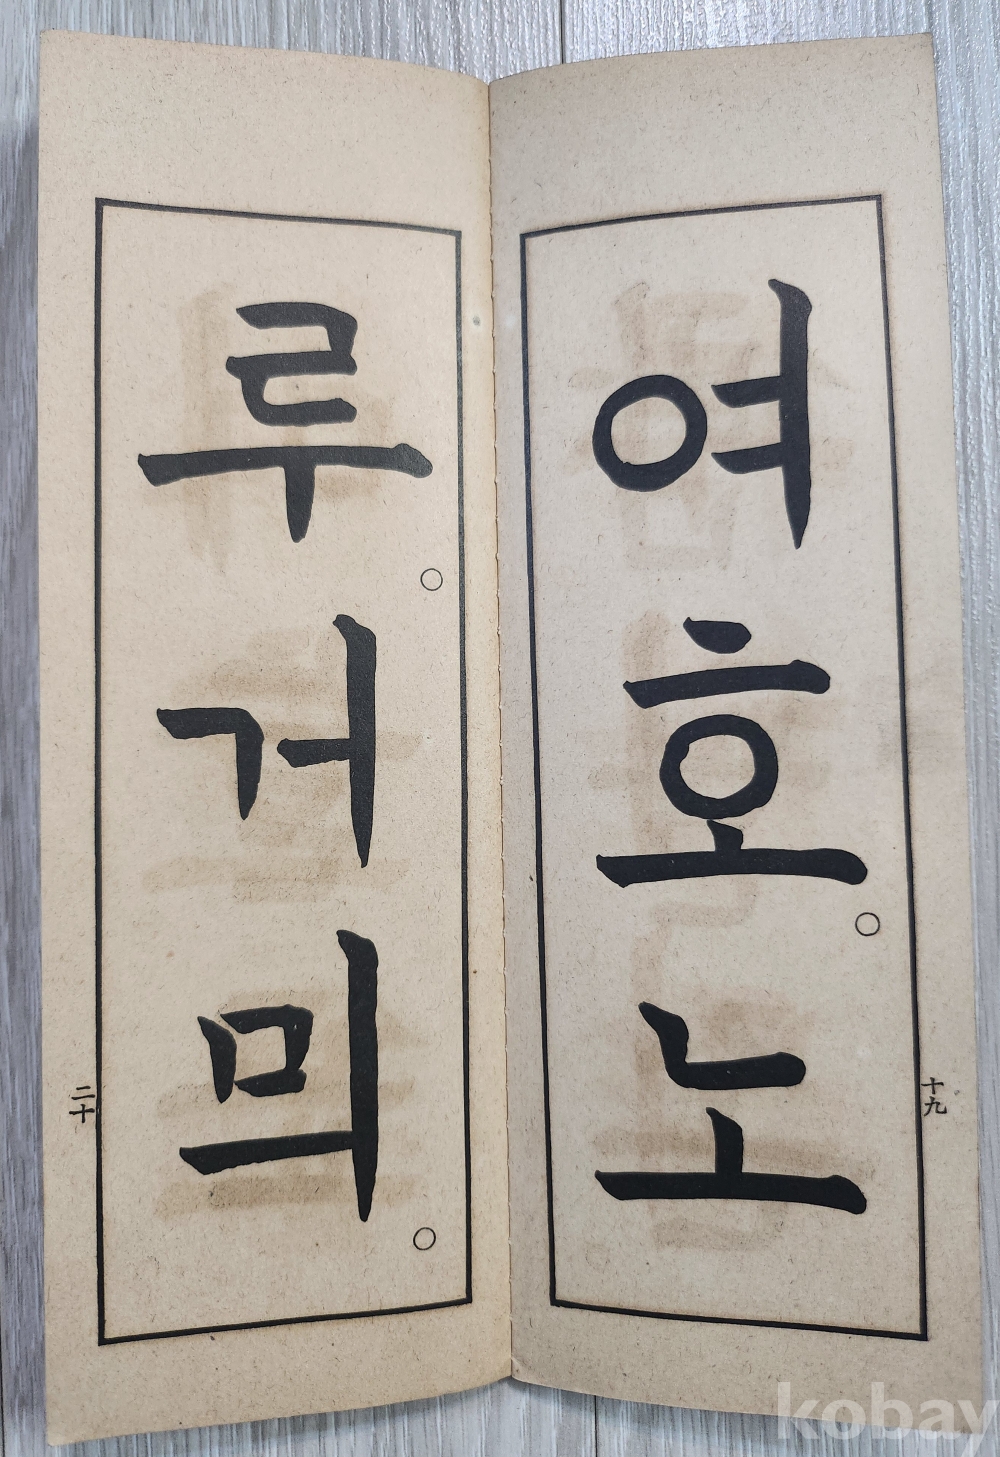 여호。노
十九
루。거믜。
二十
kobay